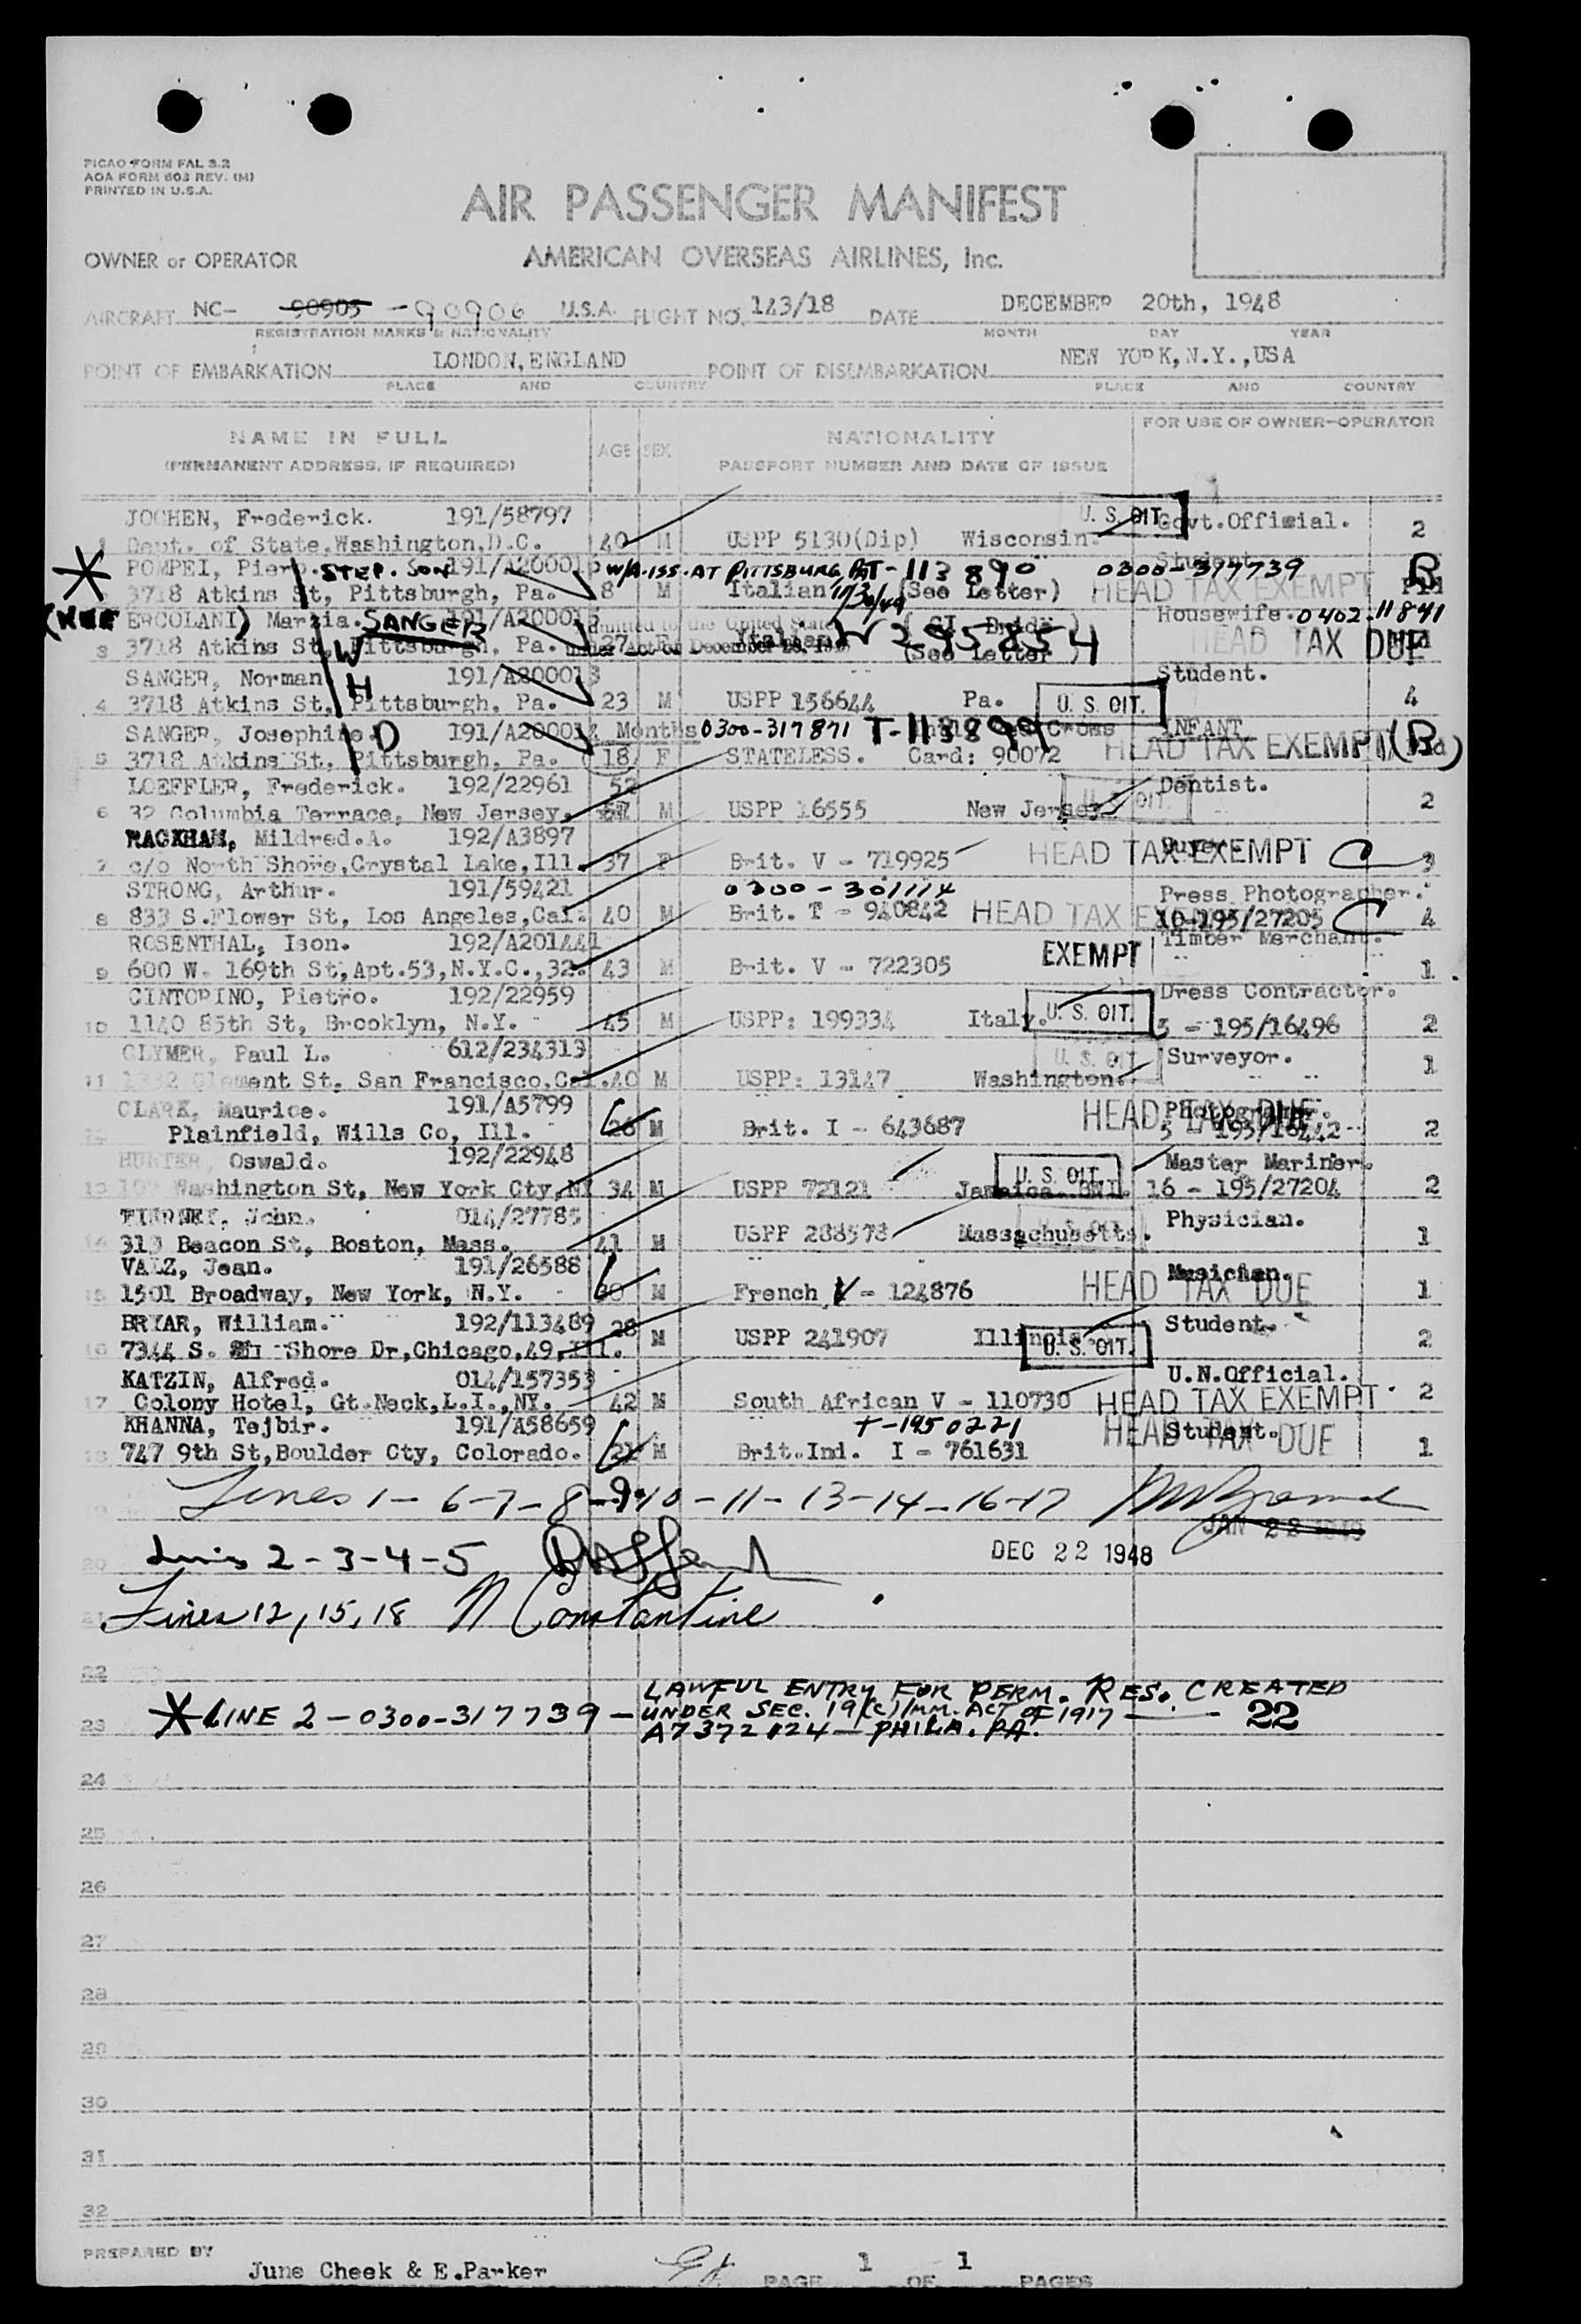 PICAO FORM FAL 3.2
AOA FORM 603 REV. (M)
PRINTED IN U.S.A.
AIR PASSENGER MANIFEST
OWNER or OPERATOR AMERICAN OVERSEAS AIRLINES, Inc.
AIRCRAFT NC- 90905 -90906 U.S.A. FLIGHT NO. 143/18 DATE DECEMBER 20th, 1948
REGISTRATION MARKS & NATIONALITY MONTH DAY YEAR
POINT OF EMBARKATION LONDON, ENGLAND POINT OF DISEMBARKATION NEW YORK, N.Y., USA
PLACE AND COUNTRY PLACE AND COUNTRY
NAME IN FULL AGE SEX NATIONALITY FOR USE OF OWNER-OPERATOR
(PERMANENT ADDRESS, IF REQUIRED) PASSPORT NUMBER AND DATE OF ISSUE
JOCHEN, Frederick. 191/58797 U. S. CIT. Govt.Official.
1 Dept. of State, Washington, D.C. 40 M USPP 5130(Dip) Wisconsin. 2
POMPEI, Piero. STEP. SON W/A-ISS. AT PITTSBURG, PA T-113890 0300-317739 Student
3718 Atkins St, Pittsburgh, Pa. 8 M Italian (See Letter) HEAD TAX EXEMPT B
(NEE ERCOLANI) Marzia. SANGER (GI. Bride) Housewife. 0402-11841
3 3718 Atkins St, Pittsburgh, Pa. W 27 F Italian W 295854 (See Letter) HEAD TAX DUE
SANGER, Norman H 191/A200013 Student.
4 3718 Atkins St, Pittsburgh, Pa. 23 M USPP 156644 Pa. U. S. CIT. 4
SANGER, Josephine. D Months 0300-317871 T-113899 Cross INFANT
5 3718 Atkins St, Pittsburgh, Pa. 18 F STATELESS. Card: 90072 HEAD TAX EXEMPT (B)
LOEFFLER, Frederick. 192/22961 52 Dentist.
6 32 Columbia Terrace, New Jersey. 57 M USPP 16555 New Jersey U. S. CIT. 2
RACKHAM, Mildred.A. 192/A3897 Buyer
7 c/o North Shore, Crystal Lake, Ill. 37 F Brit. V - 719925 HEAD TAX EXEMPT C 3
STRONG, Arthur. 191/59421 0300-301114 Press Photographer.
8 833 S.Flower St, Los Angeles, Cal. 40 M Brit. T - 940842 HEAD TAX EXEMPT 10-195/27205 C 4
ROSENTHAL, Ison. 192/A201441 EXEMPT Timber Merchant.
9 600 W. 169th St, Apt.53, N.Y.C., 32. 43 M Brit. V - 722305 1
CINTORINO, Pietro. 192/22959 Dress Contractor.
10 1140 85th St, Brooklyn, N.Y. 45 M USPP: 199334 Italy. U. S. CIT. 3 - 195/16496 2
CLYMER, Paul L. 612/234313 U. S. CIT. Surveyor. 1
11 Clement St. San Francisco, Cal. 40 M USPP: 13147 Washington.
CLARK, Maurice. 191/A5799 HEAD TAX DUE Photographer.
Plainfield, Wills Co, Ill. 26 M Brit. I - 643687 3 - 195/16442 2
HUNTER, Oswald. 192/22948 U. S. CIT. Master Mariner.
13 107 Washington St, New York Cty, NY 34 M USPP 72121 Jamaica. BWI. 16 - 195/27204 2
TIERNEY, John. 014/27785 Physician.
14 313 Beacon St, Boston, Mass. 41 M USPP 288578 Massachusetts. 1
VALZ, Jean. 191/26588 Musician.
15 1501 Broadway, New York, N.Y. 30 M French V - 124876 HEAD TAX DUE 1
BRIAR, William. 192/113489 28 Student.
16 7344 S. Shore Dr, Chicago, 49, Ill. M USPP 241907 Illinois U. S. CIT. 2
KATZIN, Alfred. 014/157353 U.N.Official.
17 Colony Hotel, Gt.Neck, L.I., NY. 42 M South African V - 110730 HEAD TAX EXEMPT 2
KHANNA, Tejbir. 191/A58659 T-1950221 Student.
18 747 9th St, Boulder Cty, Colorado. 21 M Brit.Ind. I - 761631 HEAD TAX DUE 1
Lines 1-6-7-8-9-10-11-13-14-16-17
JAN 22 1949
20 Lines 2-3-4-5 DEC 22 1948
21 Lines 12, 15, 18 N Constantine
22
LAWFUL ENTRY FOR PERM. RES. CREATED
23 *LINE 2-0300-317739- UNDER SEC. 19(c) IMM. ACT OF 1917 22
A7372124- PHILA. PA.
24
25
26
27
28
29
30
31
32
PREPARED BY June Cheek & E.Parker PAGE 1 OF 1 PAGES